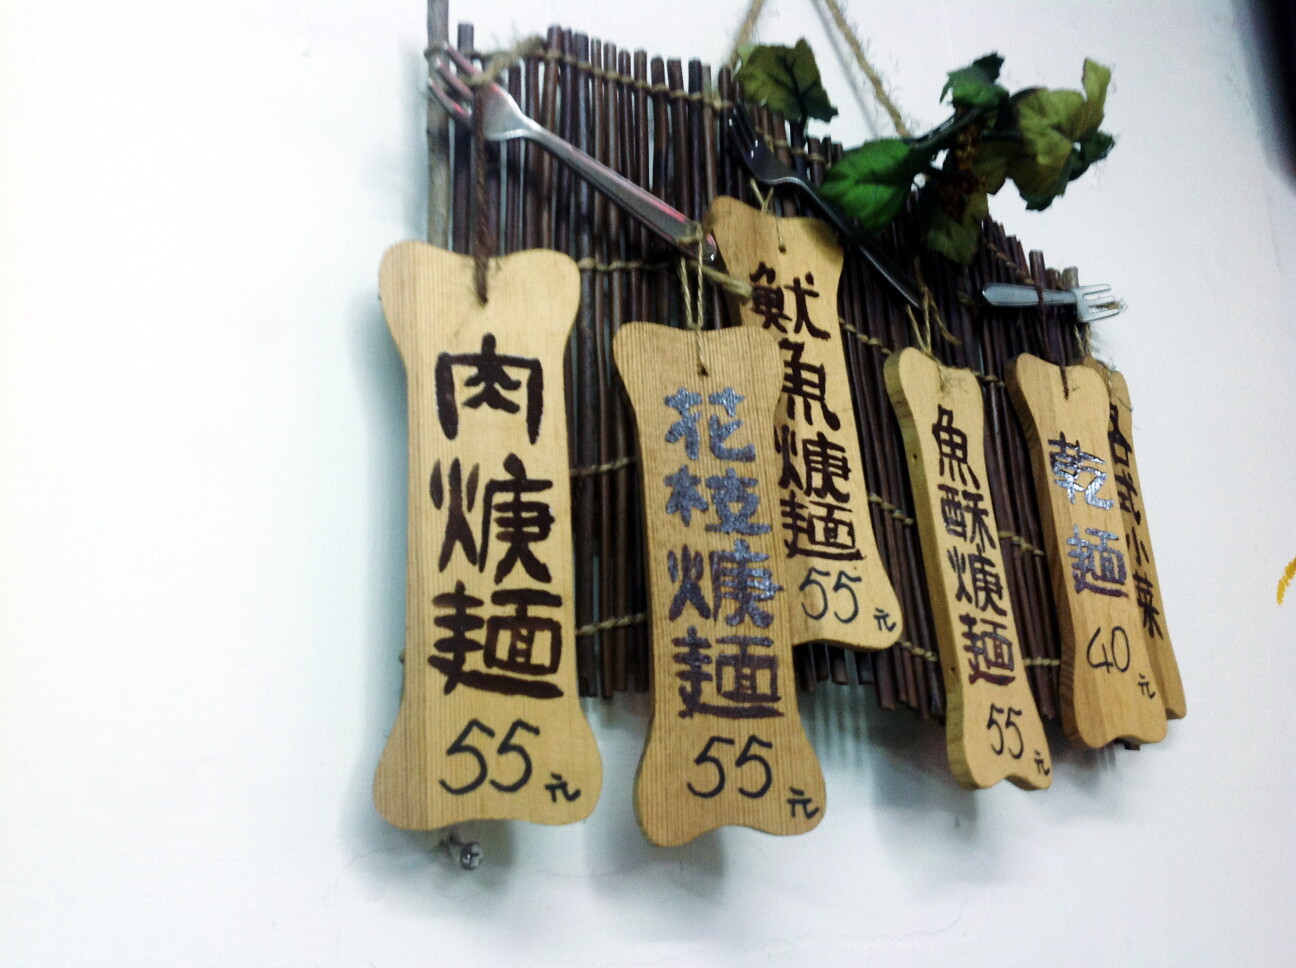 肉焿麵
55元
花枝焿麵
55元
魷魚焿麵
55元
魚酥焿麵
55元
乾麵
40元
各式小菜